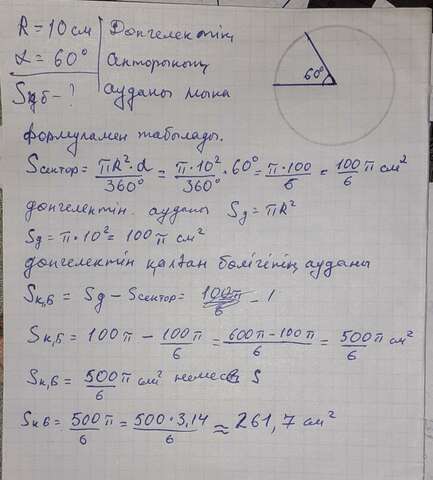 R = 10 см
Дөңгелектің
α = 60°
секторының
Sқ,б - ?
ауданы мына
60°
формуламен табылады.
Sсектор = πR²·α/360° = π·10²/360° · 60° = π·100/6 = 100/6 π см²
дөңгелектің ауданы Sд = πR²
Sд = π·10² = 100π см²
дөңгелектің қалған бөлігінің ауданы
Sқ,б = Sд - Sсектор =
Sқ,б = 100π - 100π/6 = 600π-100π/6 = 500π/6 см²
Sқ,б = 500π/6 см² немесе S
Sқб = 500π/6 = 500·3,14/6 ≈ 261,7 см²